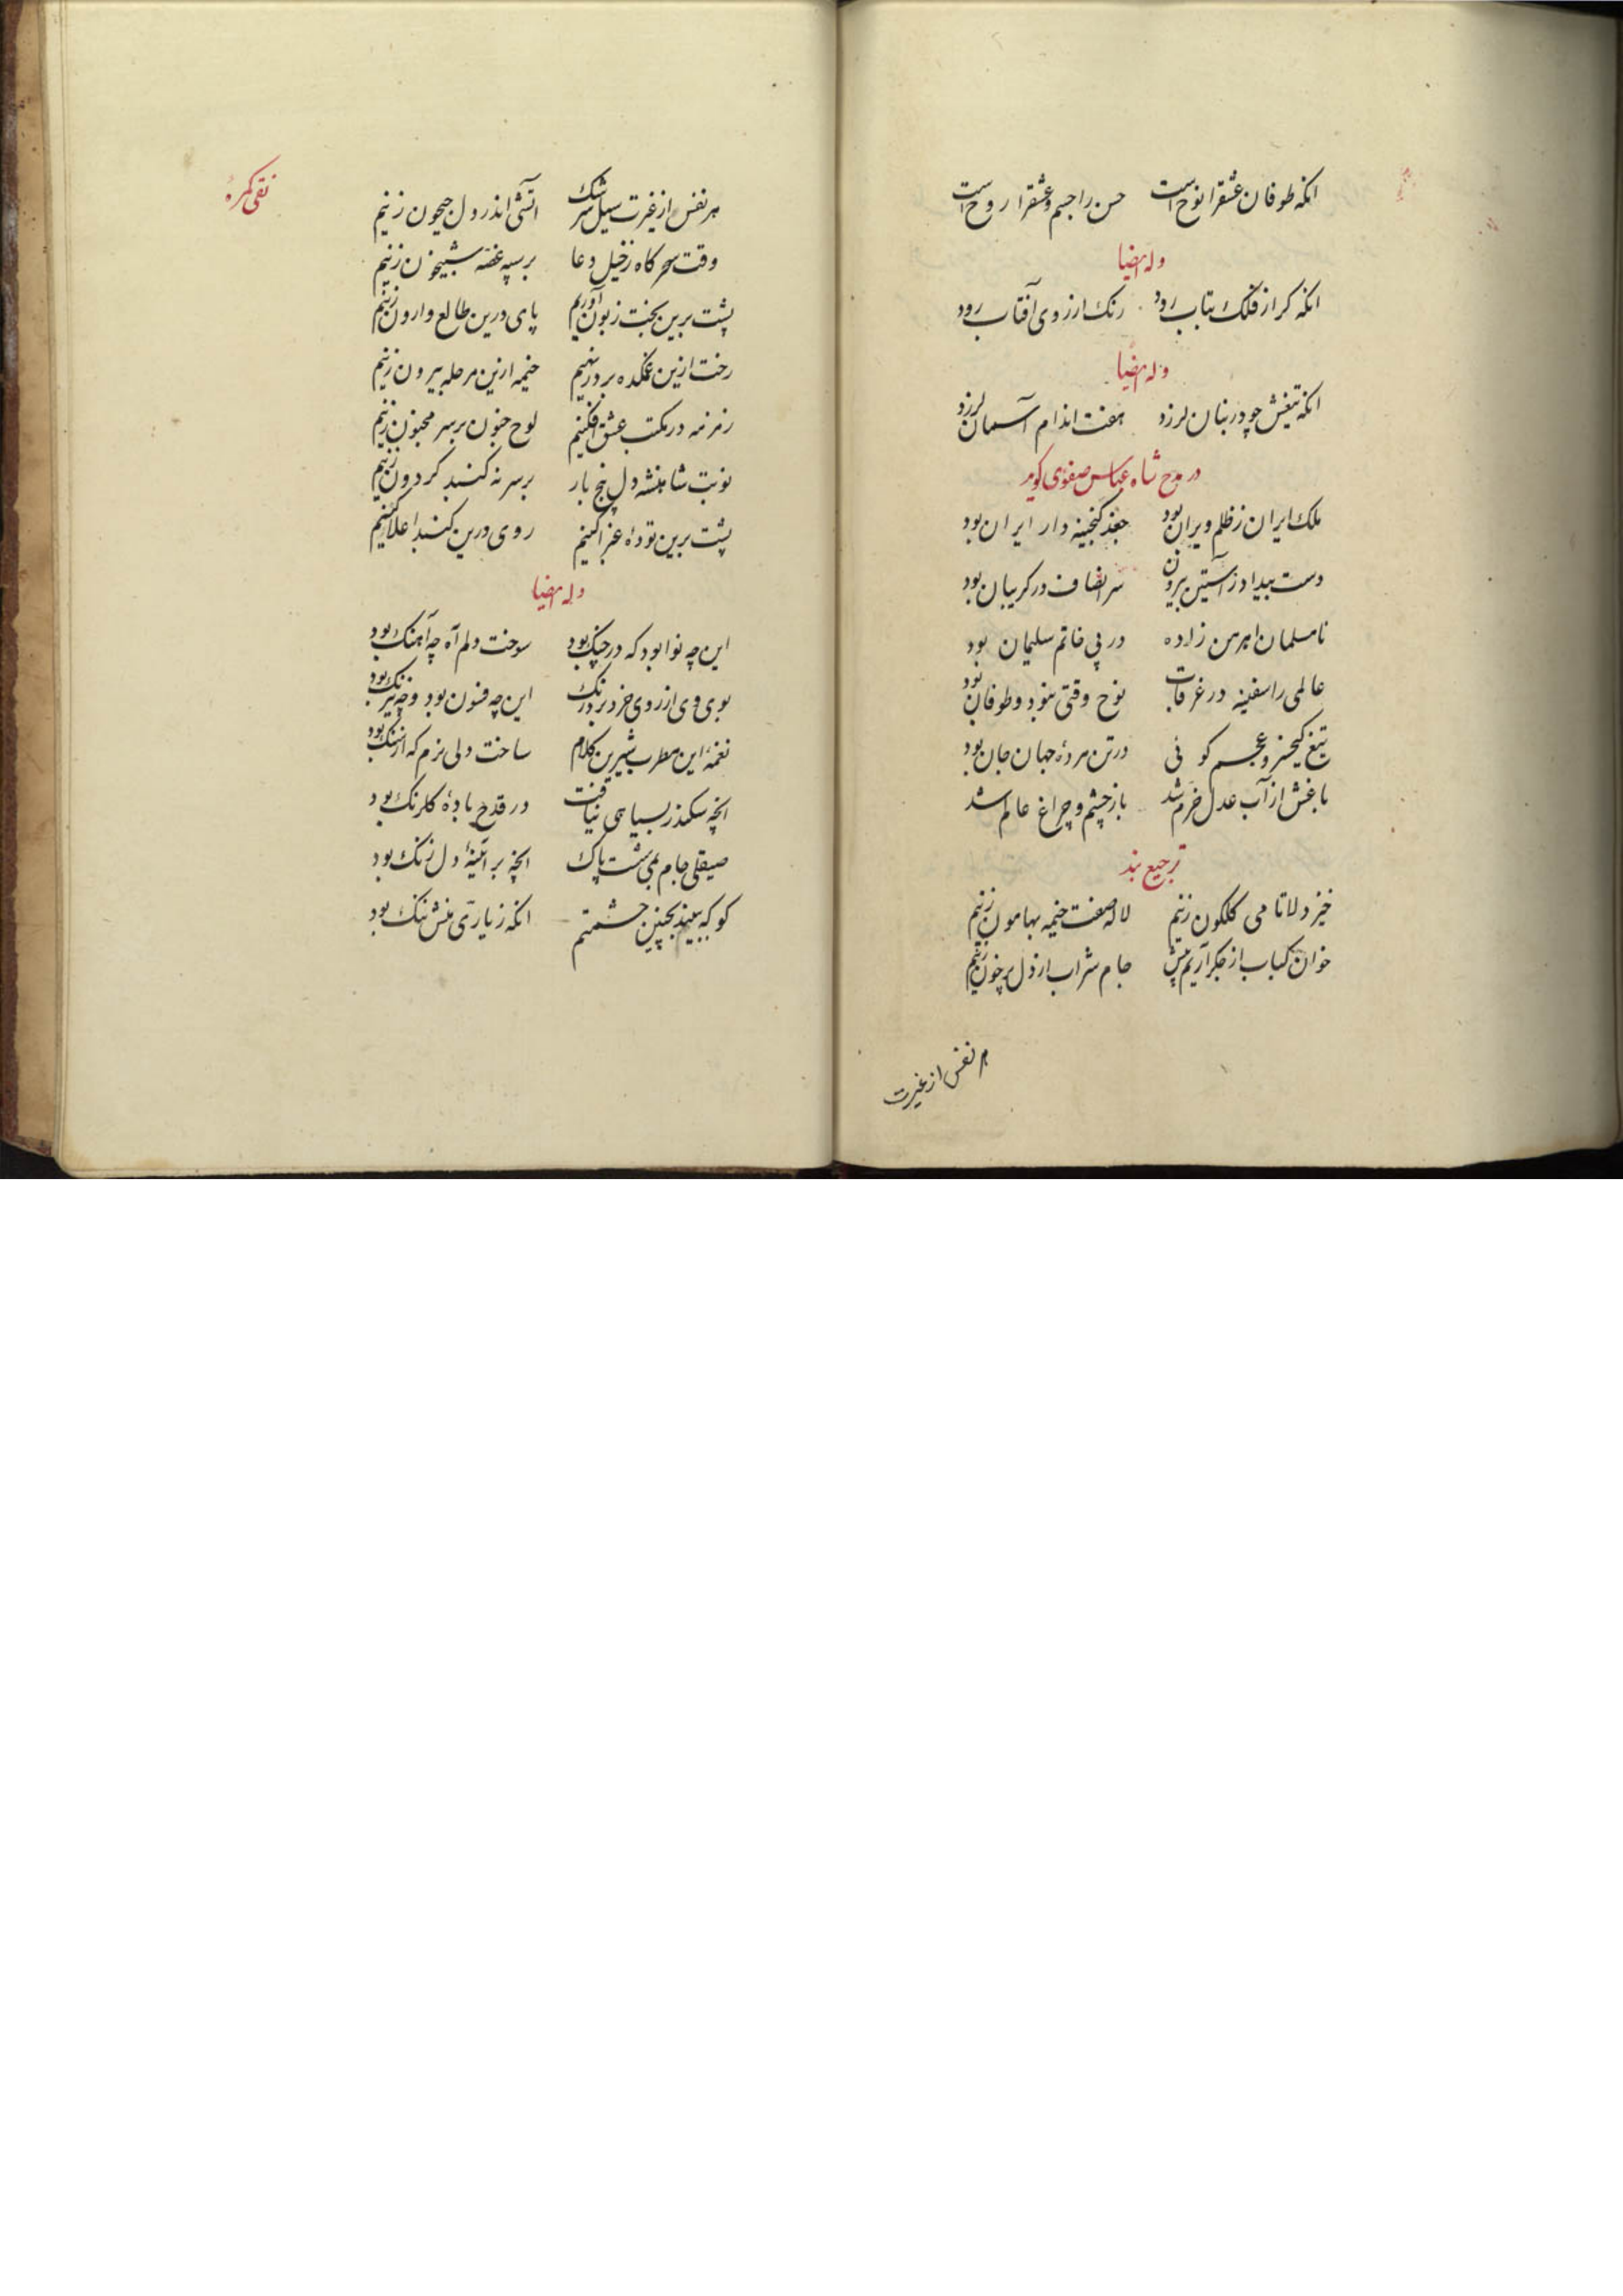 انکه طوفان عشقرا نوح است حسن را جسم و عشقرا روح است
وله ایضا
انکه کر از فلک بتاب رود رنک از روی آفتاب رود
وله ایضا
انکه تیغش چو در بنان لرزد هفت اندام آسمان لرزد
در مدح شاه عباس صفوی کوید
ملک ایران ز ظلم ویران بود جغد کنجینه دار ایران بود
دست بیداد ز آستین بیرون سر انصاف در کریبان بود
نامسلمان اهرمن زاده در پی خاتم سلیمان بود
عالمی را سفینه در غرقاب نوح وقتی نبود و طوفان بود
تیغ کیخسرو عجم کوئی در تن مردۀ جهان جان بود
باغش از آب عدل خرم شد باز چشم و چراغ عالم شد
ترجیع بند
خیز دلا تا می کلکون زنیم لاله صفت خیمه بهامون زنیم
خوان کباب از جکر آریم پیش جام شراب از دل پرخون زنیم
هر نفس از غیرت
نقی کمرۀ
هر نفس از غیرت سیل سرشک اتشی اندر دل جیحون زنیم
وقت سحرکاه ز خیل دعا بر سپه غصه شبیخون زنیم
پشت برین بخت زبون آوریم پای درین طالع وارون زنیم
رخت ازین غمکده بر در نهیم خیمه ازین مرحله بیرون زنیم
زمزمه در مکتب عشق افکنیم لوح جنون بر سر مجنون زنیم
نوبت شاهنشه دل پنج بار بر سر نه کنبد کردون زنیم
پشت برین تودۀ غبرا کنیم روی درین کنبد اعلا کنیم
وله ایضا
این چه نوا بود که در چنک بود سوخت دلم آه چه آهنک بود
بوی وی از روی خرد برد رنک این چه فسون بود و چه نیرنک بود
نغمۀ این مطرب شیرین کلام ساخت دلی نرم که از سنک بود
انچه سکندر بسیاهی نیافت در قدح بادۀ کلرنک بود
صیقلی جام بمی شست پاک انچه بر آئینۀ دل زنک بود
کو که ببیند بچنین حشمتم انکه ز یاری منش ننک بود